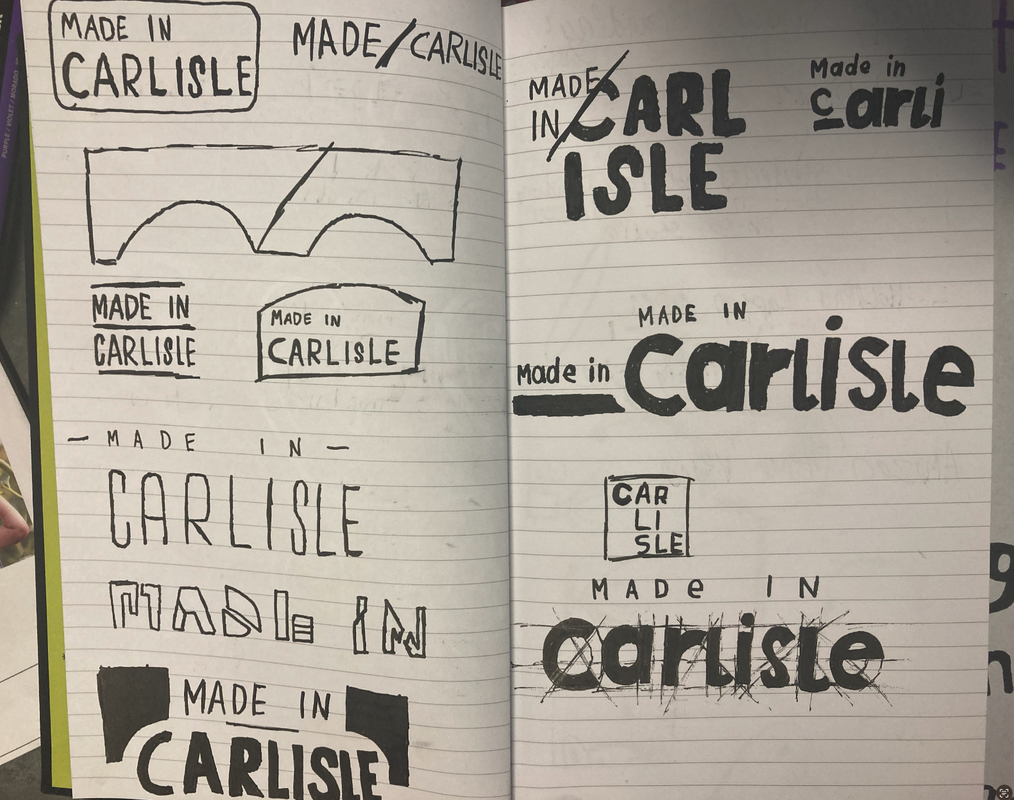 MADE IN
CARLISLE
MADE/CARLISLE
MADE IN
CARLISLE
MADE IN
CARLISLE
— MADE IN —
CARLISLE
MADE IN
MADE IN
CARLISLE
MADE
IN/CARL
ISLE
Made in
carli
MADE IN
Made in Carlisle
CAR
LI
SLE
MADe IN
Carlisle
PURPLE / VIOLET / MORADO